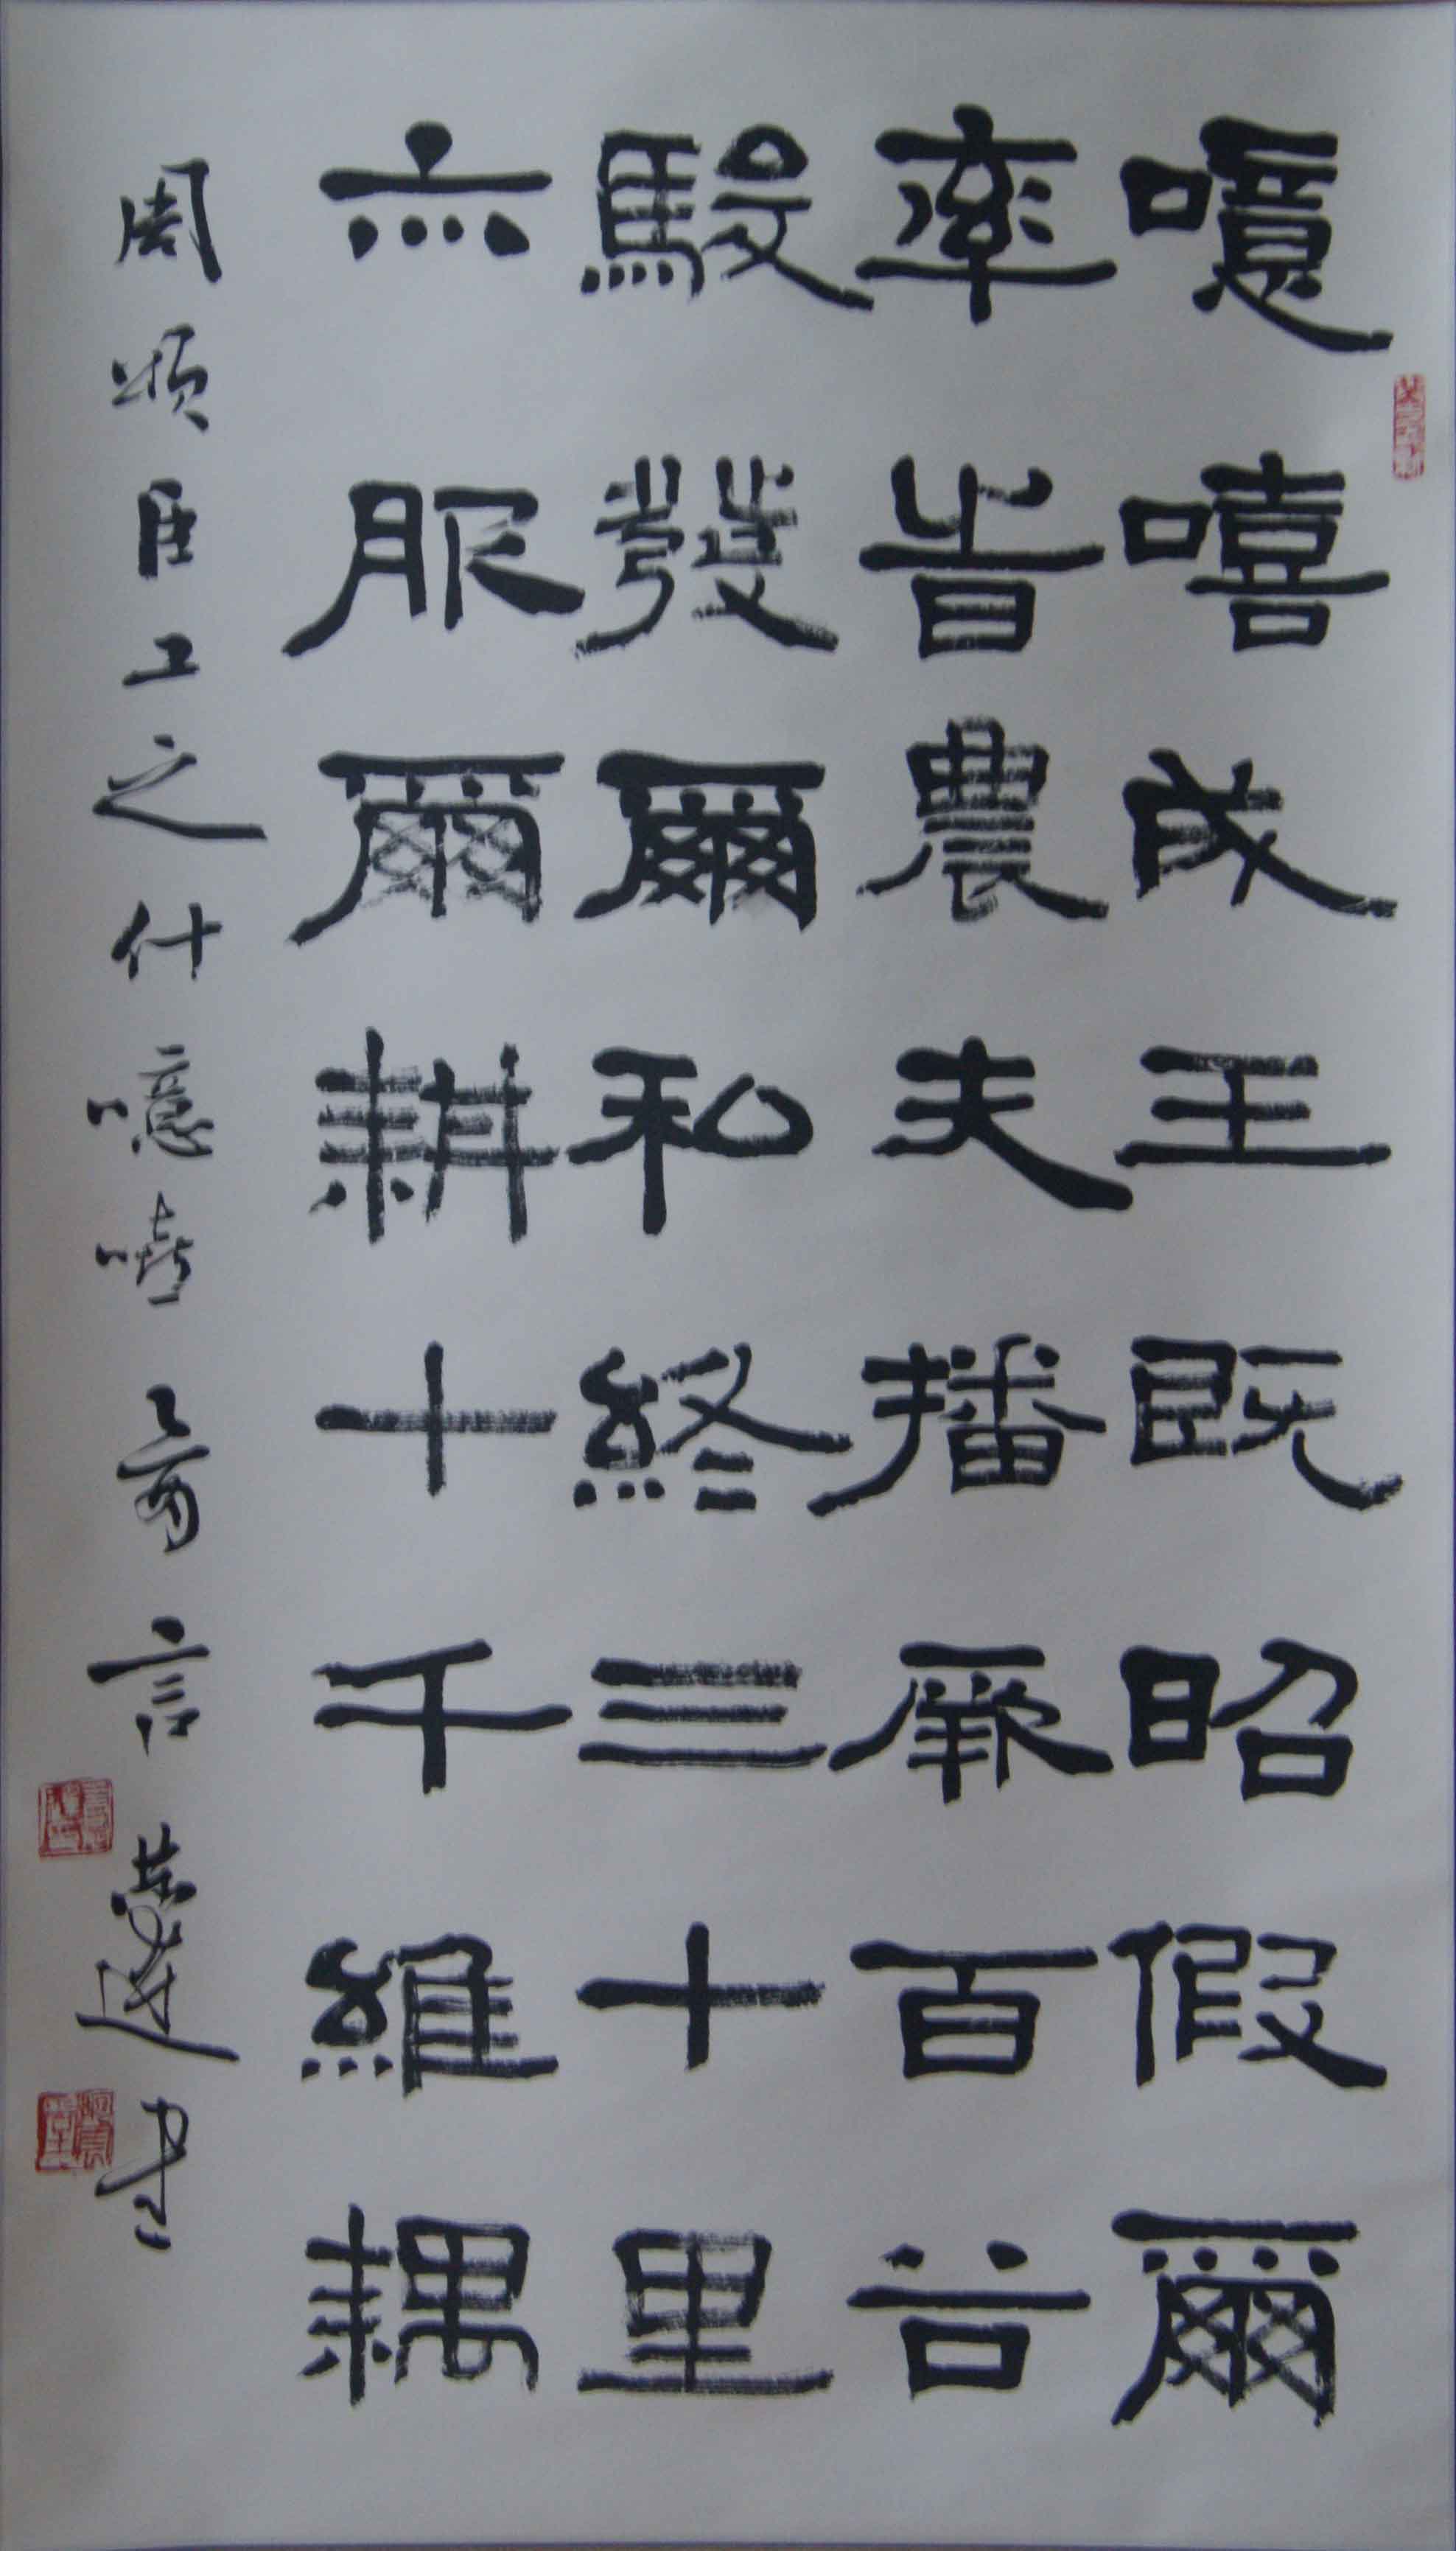 噫嘻成王既昭假爾
率旹農夫播厥百谷
駿發爾私終三十里
亦服爾耕十千維耦
周頌臣工之什噫嘻 言恭達書